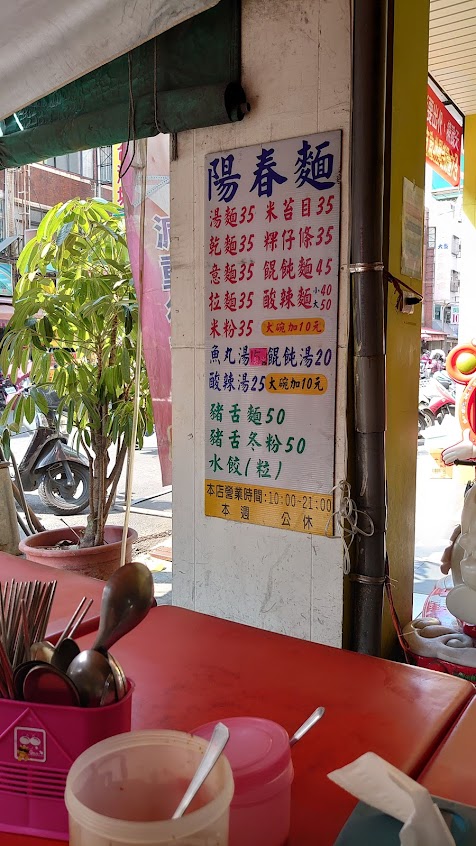 陽春麵
湯麵35 米苔目35
乾麵35 粿仔條35
意麵35 餛飩麵45
拉麵35 酸辣麵小40大50
米粉35 大碗加10元
魚丸湯15 餛飩湯20
酸辣湯25 大碗加10元
豬舌麵50
豬舌冬粉50
水餃(粒)
本店營業時間:10:00-21:00
本週 公休